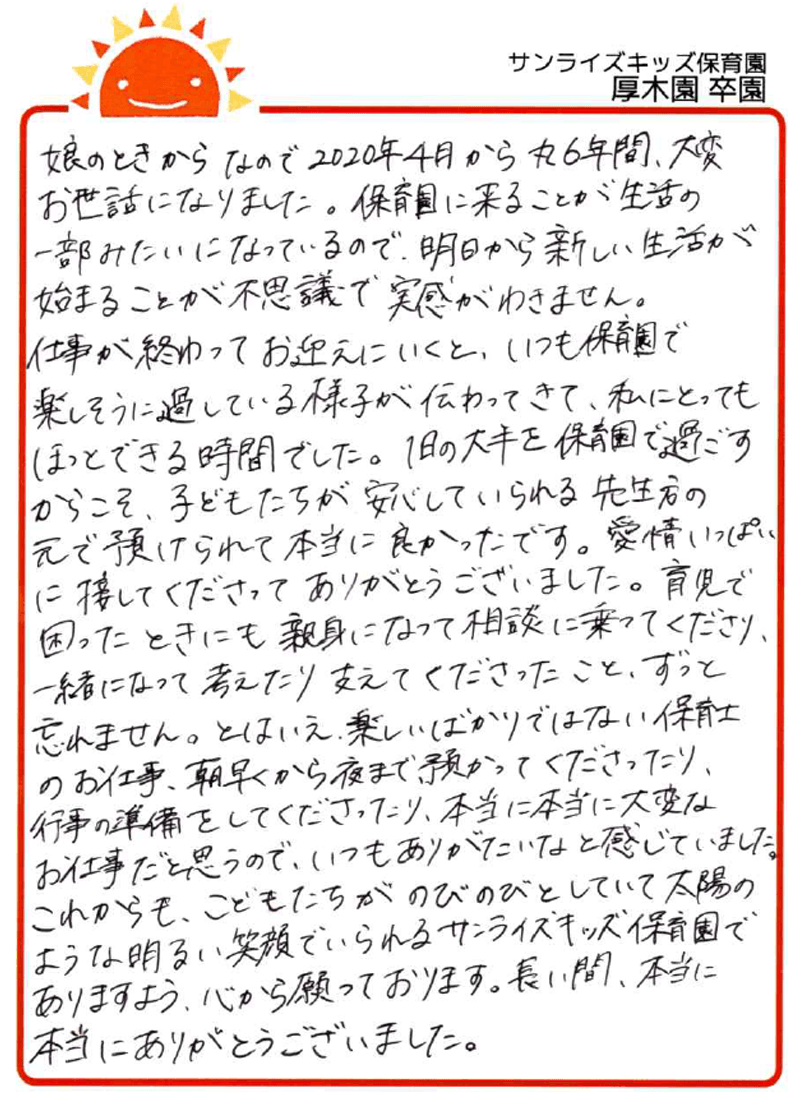 サンライズキッズ保育園
厚木園 卒園
娘のときからなので2020年4月から丸6年間、大変
お世話になりました。保育園に来ることが生活の
一部みたいになっているので、明日から新しい生活が
始まることが不思議で実感がわきません。
仕事が終わってお迎えにいくと、いつも保育園で
楽しそうに過している様子が伝わってきて、私にとっても
ほっとできる時間でした。1日の大半を保育園で過ごす
からこそ、子どもたちが安心していられる先生方の
元で預けられて本当に良かったです。愛情いっぱい
に接してくださってありがとうございました。育児で
困ったときにも親身になって相談に乗ってくださり、
一緒になって考えたり支えてくださったこと、ずっと
忘れません。とはいえ、楽しいばかりではない保育士
のお仕事、朝早くから夜まで預かってくださったり、
行事の準備をしてくださったり、本当に本当に大変な
お仕事だと思うので、いつもありがたいなと感じていました。
これからも、こどもたちがのびのびとしていて太陽の
ような明るい笑顔でいられるサンライズキッズ保育園で
ありますよう、心から願っております。長い間、本当に
本当にありがとうございました。